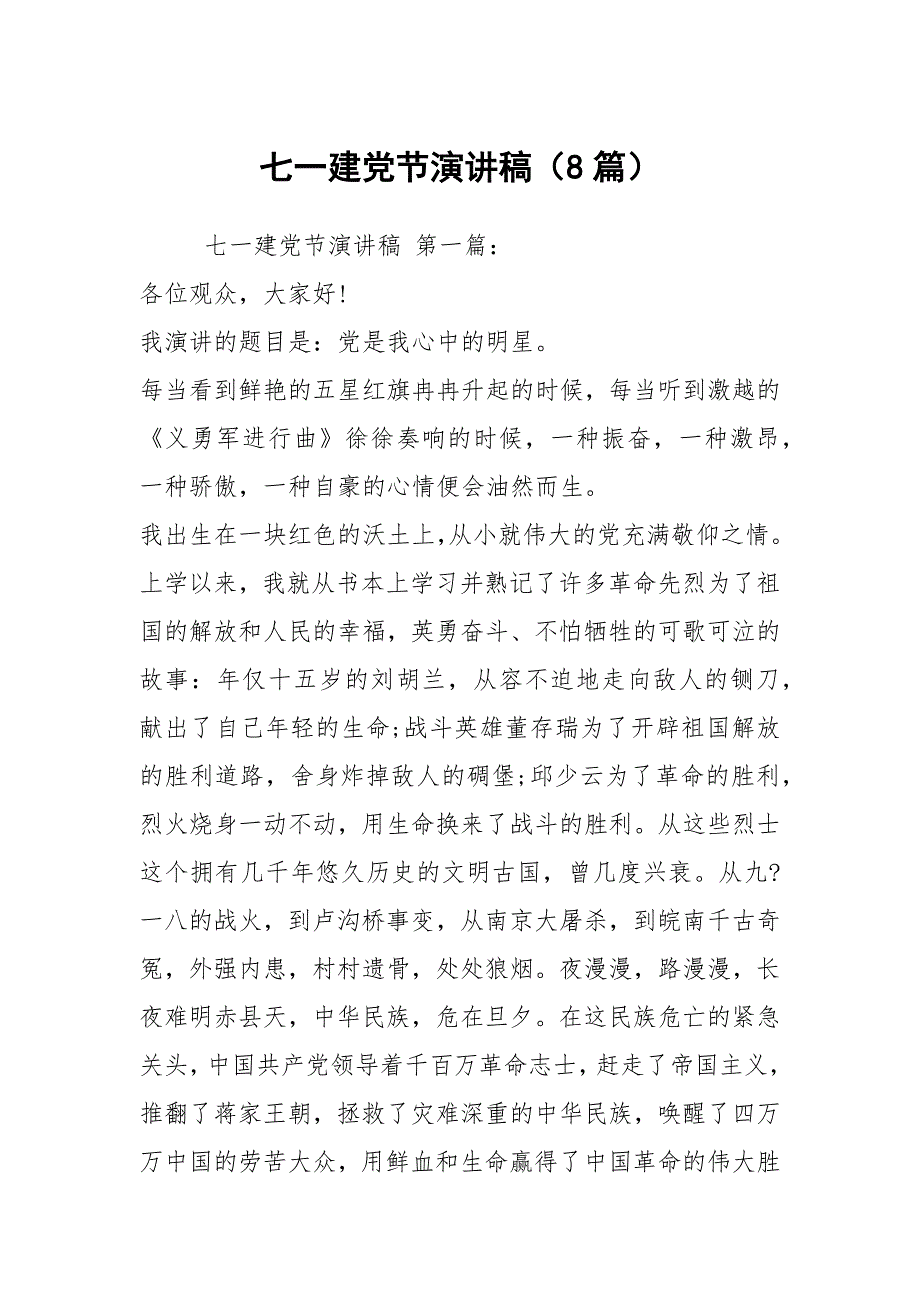 七一建党节演讲稿（8 篇）
七一建党节演讲稿 第一篇：
各位观众，大家好!
我演讲的题目是：党是我心中的明星。
每当看到鲜艳的五星红旗冉冉升起的时候，每当听到激越的
《义勇军进行曲》徐徐奏响的时候，一种振奋，一种激昂，
一种骄傲，一种自豪的心情便会油然而生。
我出生在一块红色的沃土上，从小就伟大的党充满敬仰之情。
上学以来，我就从书本上学习并熟记了许多革命先烈为了祖
国的解放和人民的幸福，英勇奋斗、不怕牺牲的可歌可泣的
故事：年仅十五岁的刘胡兰，从容不迫地走向敌人的铡刀，
献出了自己年轻的生命;战斗英雄董存瑞为了开辟祖国解放
的胜利道路，舍身炸掉敌人的碉堡;邱少云为了革命的胜利，
烈火烧身一动不动，用生命换来了战斗的胜利。从这些烈士
这个拥有几千年悠久历史的文明古国，曾几度兴衰。从九?
一八的战火，到卢沟桥事变，从南京大屠杀，到皖南千古奇
冤，外强内患，村村遗骨，处处狼烟。夜漫漫，路漫漫，长
夜难明赤县天，中华民族，危在旦夕。在这民族危亡的紧急
关头，中国共产党领导着千百万革命志士，赶走了帝国主义，
推翻了蒋家王朝，拯救了灾难深重的中华民族，唤醒了四万
万中国的劳苦大众，用鲜血和生命赢得了中国革命的伟大胜